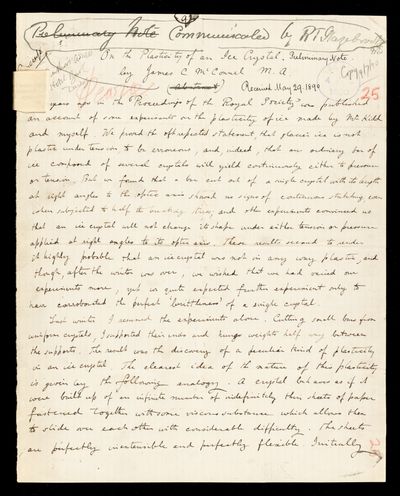 Preliminary Note Communicated by R T Glazebrook
On the Plasticity of an Ice Crystal. Preliminary Note.
by James C McConnel M.A.
Abstract
Received May 29. 1890
25
years ago in the Proceedings of the Royal Society was published
an account of some experiments on the plasticity of ice made by Mr Kidd
and myself. We proved the oft repeated statement, that glacier ice is not
plastic under tension to be erroneous, and, indeed, that an ordinary bar of
ice composed of several crystals will yield continuously either to pressure
or tension. But we found that a bar cut out of a single crystal with its length
at right angles to the optic axis showed no signs of continuous stretching, even
when subjected to half the breaking stress, and other experiments convinced us
that an ice crystal will not change its shape under either tension or pressure
applied at right angles to its optic axis. These results seemed to render
it highly probable that an ice crystal was not in any way plastic, and
though, after the winter was over, we wished that we had varied our
experiments more, yet we quite expected further experiment only to
have corroborated the perfect 'brittleness' of a single crystal.
Last winter I renewed the experiments alone. Cutting small bars from
uniform crystals, I supported their ends and hung weights half way between
the supports. The result was the discovery of a peculiar kind of plasticity
in an ice crystal. The clearest idea of the nature of this plasticity
is given by the following analogy. A crystal behaves as if it
were built up of an infinite number of indefinitely thin sheets of paper
fastened together with some viscous substance which allows them
to slide over each other with considerable difficulty. The sheets
are perfectly inextensible and perfectly flexible. Initially